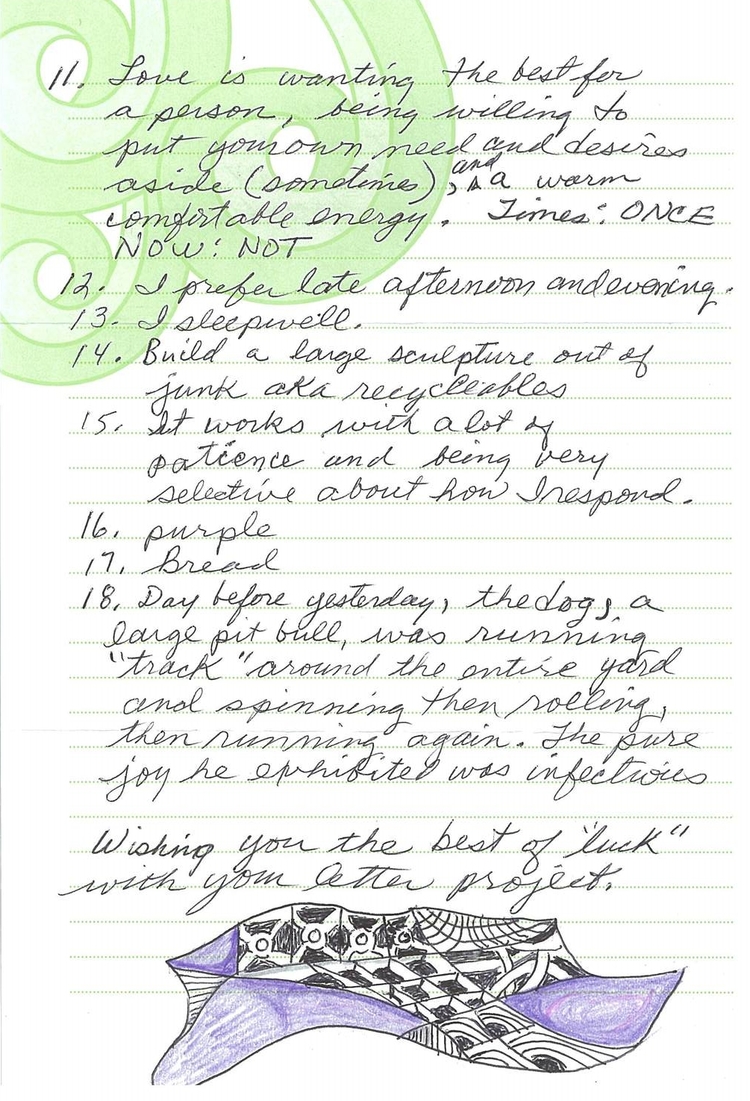 11. Love is wanting the best for
a person, being willing to
put your own need and desires
aside (sometimes), and a warm
comfortable energy. Times: ONCE
NOW: NOT
12. I prefer late afternoon and evening.
13. I sleep well.
14. Build a large sculpture out of
junk aka recycleables
15. It works with a lot of
patience and being very
selective about how I respond.
16. purple
17. Bread
18. Day before yesterday, the dog, a
large pit bull, was running
"track" around the entire yard
and spinning then rolling,
then running again. The pure
joy he exhibited was infectious
Wishing you the best of "luck"
with your letter project.